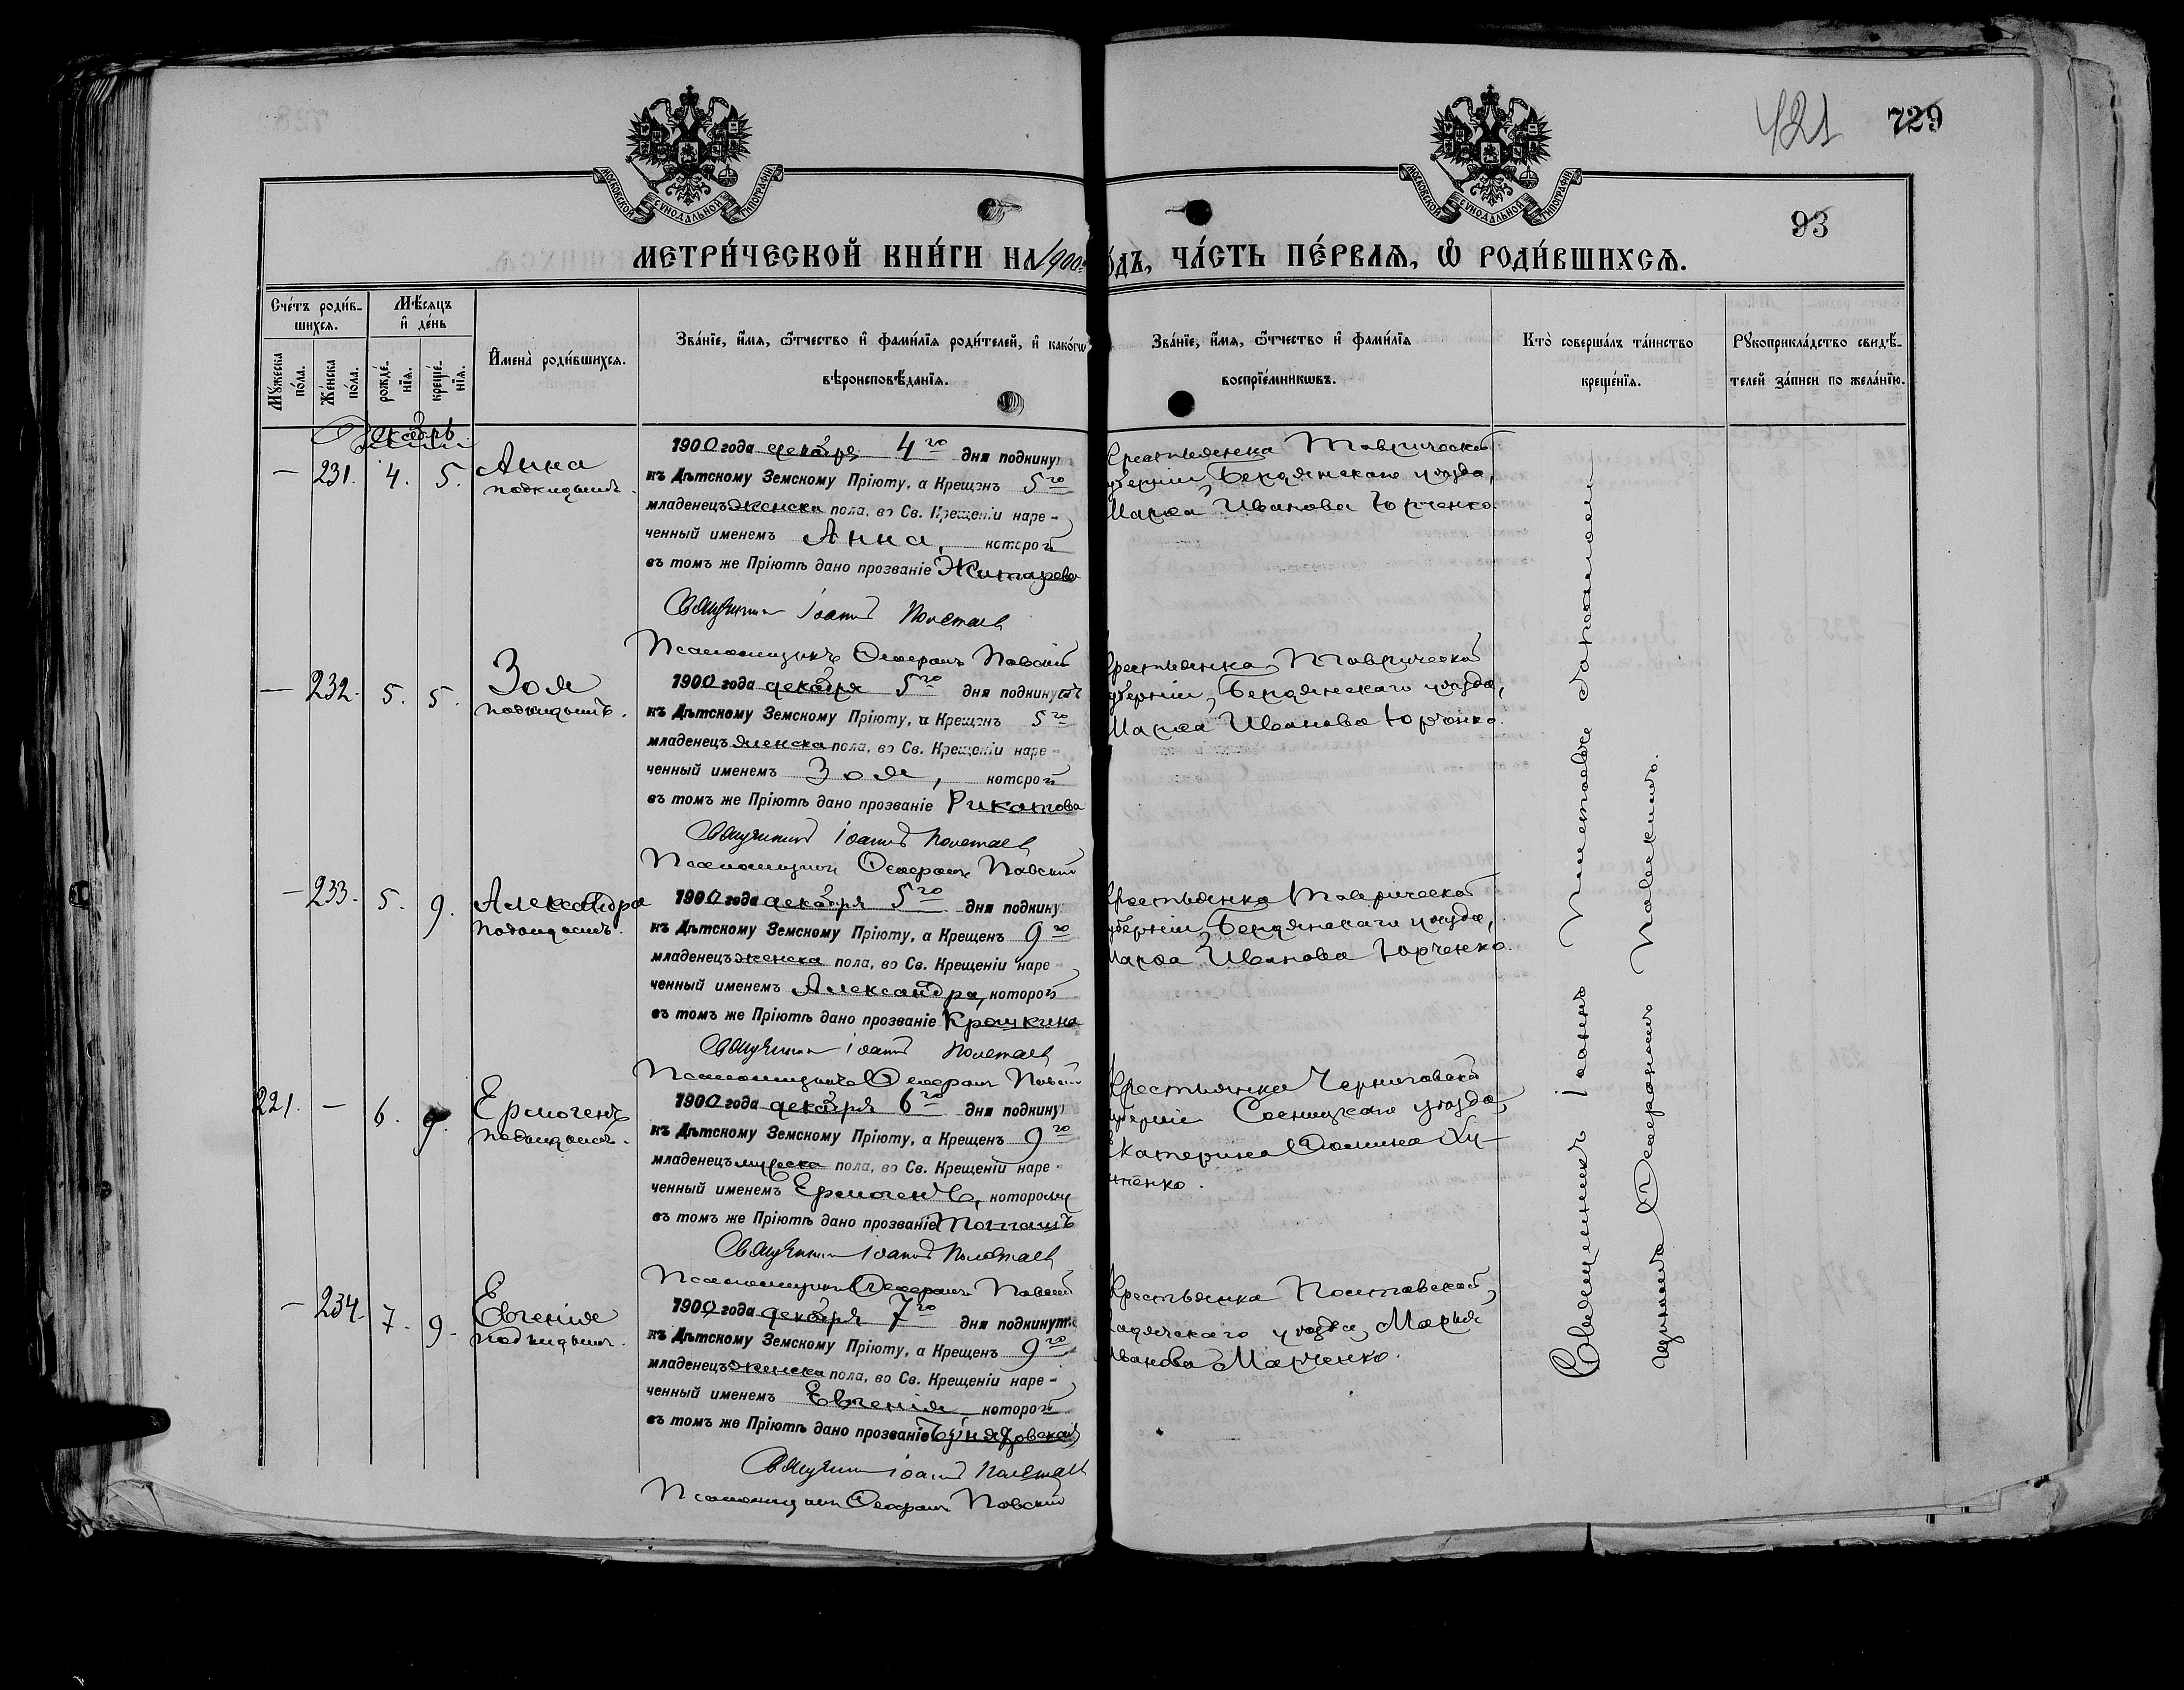 421
729
93
МОСКОВСКОЙ СѴНОДАЛЬНОЙ ТИПОГРАФІИ
МОСКОВСКОЙ СѴНОДАЛЬНОЙ ТИПОГРАФІИ
МЕТРИ́ЧЕСКОЙ КНИ́ГИ НА 1900
ѻ́дъ, ЧА́СТЬ ПЕ́РВАѦ, Ѽ РОДИ́ВШИХСѦ.
Сче́тъ роди́в-
шихсѧ.
Мѣ́сѧцъ
и҆ де́нь
Мꙋ́жеска
по́ла.
Же́нска
по́ла.
рожде́-
нїѧ.
креще́-
нїѧ.
И҆мена̀ роди́вшихсѧ.
Зва́нїе, и҆́мѧ, ѻ҆́тчество и҆ фами́лїѧ роди́телей, и҆ како́гѡ
вѣроисповѣ́данїѧ.
Зва́нїе, и҆́мѧ, ѻ҆́тчество и҆ фами́лїѧ
воспрїе́мникѡвъ.
Кто̀ соверша́лъ та́инство
креще́нїѧ.
Рꙋкоприкла́дство свидѣ́-
телей за́писи по жела́нїю.
Декабрь
— 231. 4. 5. Анна
подкидышъ.
1900 года декабря 4го дня подкинут
къ Дѣтскому Земскому Пріюту, а Крещенъ 5го
младенецъ женска пола, во Св. Крещеніи наре-
ченный именемъ Анна, которой
въ томъ же Пріютѣ дано прозваніе Житарева
Священникъ Іоаннъ Полетаевъ
Псаломщикъ Ѳеофанъ Павскій
рестьянка Таврической
уберніи, Бердянскаго уѣзда,
Марѳа Иванова Юрченко.
— 232. 5. 5. Зоя
подкидышъ.
1900 года декабря 5го дня подкинутъ
къ Дѣтскому Земскому Пріюту, а Крещенъ 5го
младенецъ женска пола, во Св. Крещеніи наре-
ченный именемъ Зоя, которой
въ томъ же Пріютѣ дано прозваніе Рикатова
Священникъ Іоаннъ Полетаевъ
Псаломщикъ Ѳеофанъ Павскій
рестьянка Таврической
уберніи, Бердянскаго уѣзда,
Марѳа Иванова Юрченко.
— 233. 5. 9. Александра
подкидышъ.
1900 года декабря 5го дня подкину
къ Дѣтскому Земскому Пріюту, а Крещенъ 9го
младенецъ женска пола, во Св. Крещеніи наре-
ченный именемъ Александра, которой
въ томъ же Пріютѣ дано прозваніе Крошкина
Священникъ Іоаннъ Полетаевъ
Псаломщикъ Ѳеофанъ Павскій
рестьянка Таврической
уберніи, Бердянскаго уѣзда,
Марѳа Иванова Юрченко.
221. — 6. 9. Ермогенъ
подкидышъ.
1900 года декабря 6го дня подкину
къ Дѣтскому Земскому Пріюту, а Крещенъ 9го
младенецъ мужеска пола, во Св. Крещеніи наре-
ченный именемъ Ермогенъ, которому
въ томъ же Пріютѣ дано прозваніе
Священникъ Іоаннъ Полетаевъ
Псаломщикъ Ѳеофанъ Павскій
рестьянка Черниговской
уберніи Сосницкаго уѣзда,
Екатерина Ѳомина
— 234. 7. 9. Евгенія
подкидышъ.
1900 года декабря 7го дня подкинутъ
къ Дѣтскому Земскому Пріюту, а Крещенъ 9го
младенецъ женска пола, во Св. Крещеніи наре-
ченный именемъ Евгенія которой
въ томъ же Пріютѣ дано прозваніе
Священникъ Іоаннъ Полетаевъ
Псаломщикъ Ѳеофанъ Павскій
рестьянка Полтавской,
адячскаго уѣзда, Марья
Иванова Марченко.
Священникъ Іоаннъ Полетаевъ
Ѳеофаномъ Павскимъ.